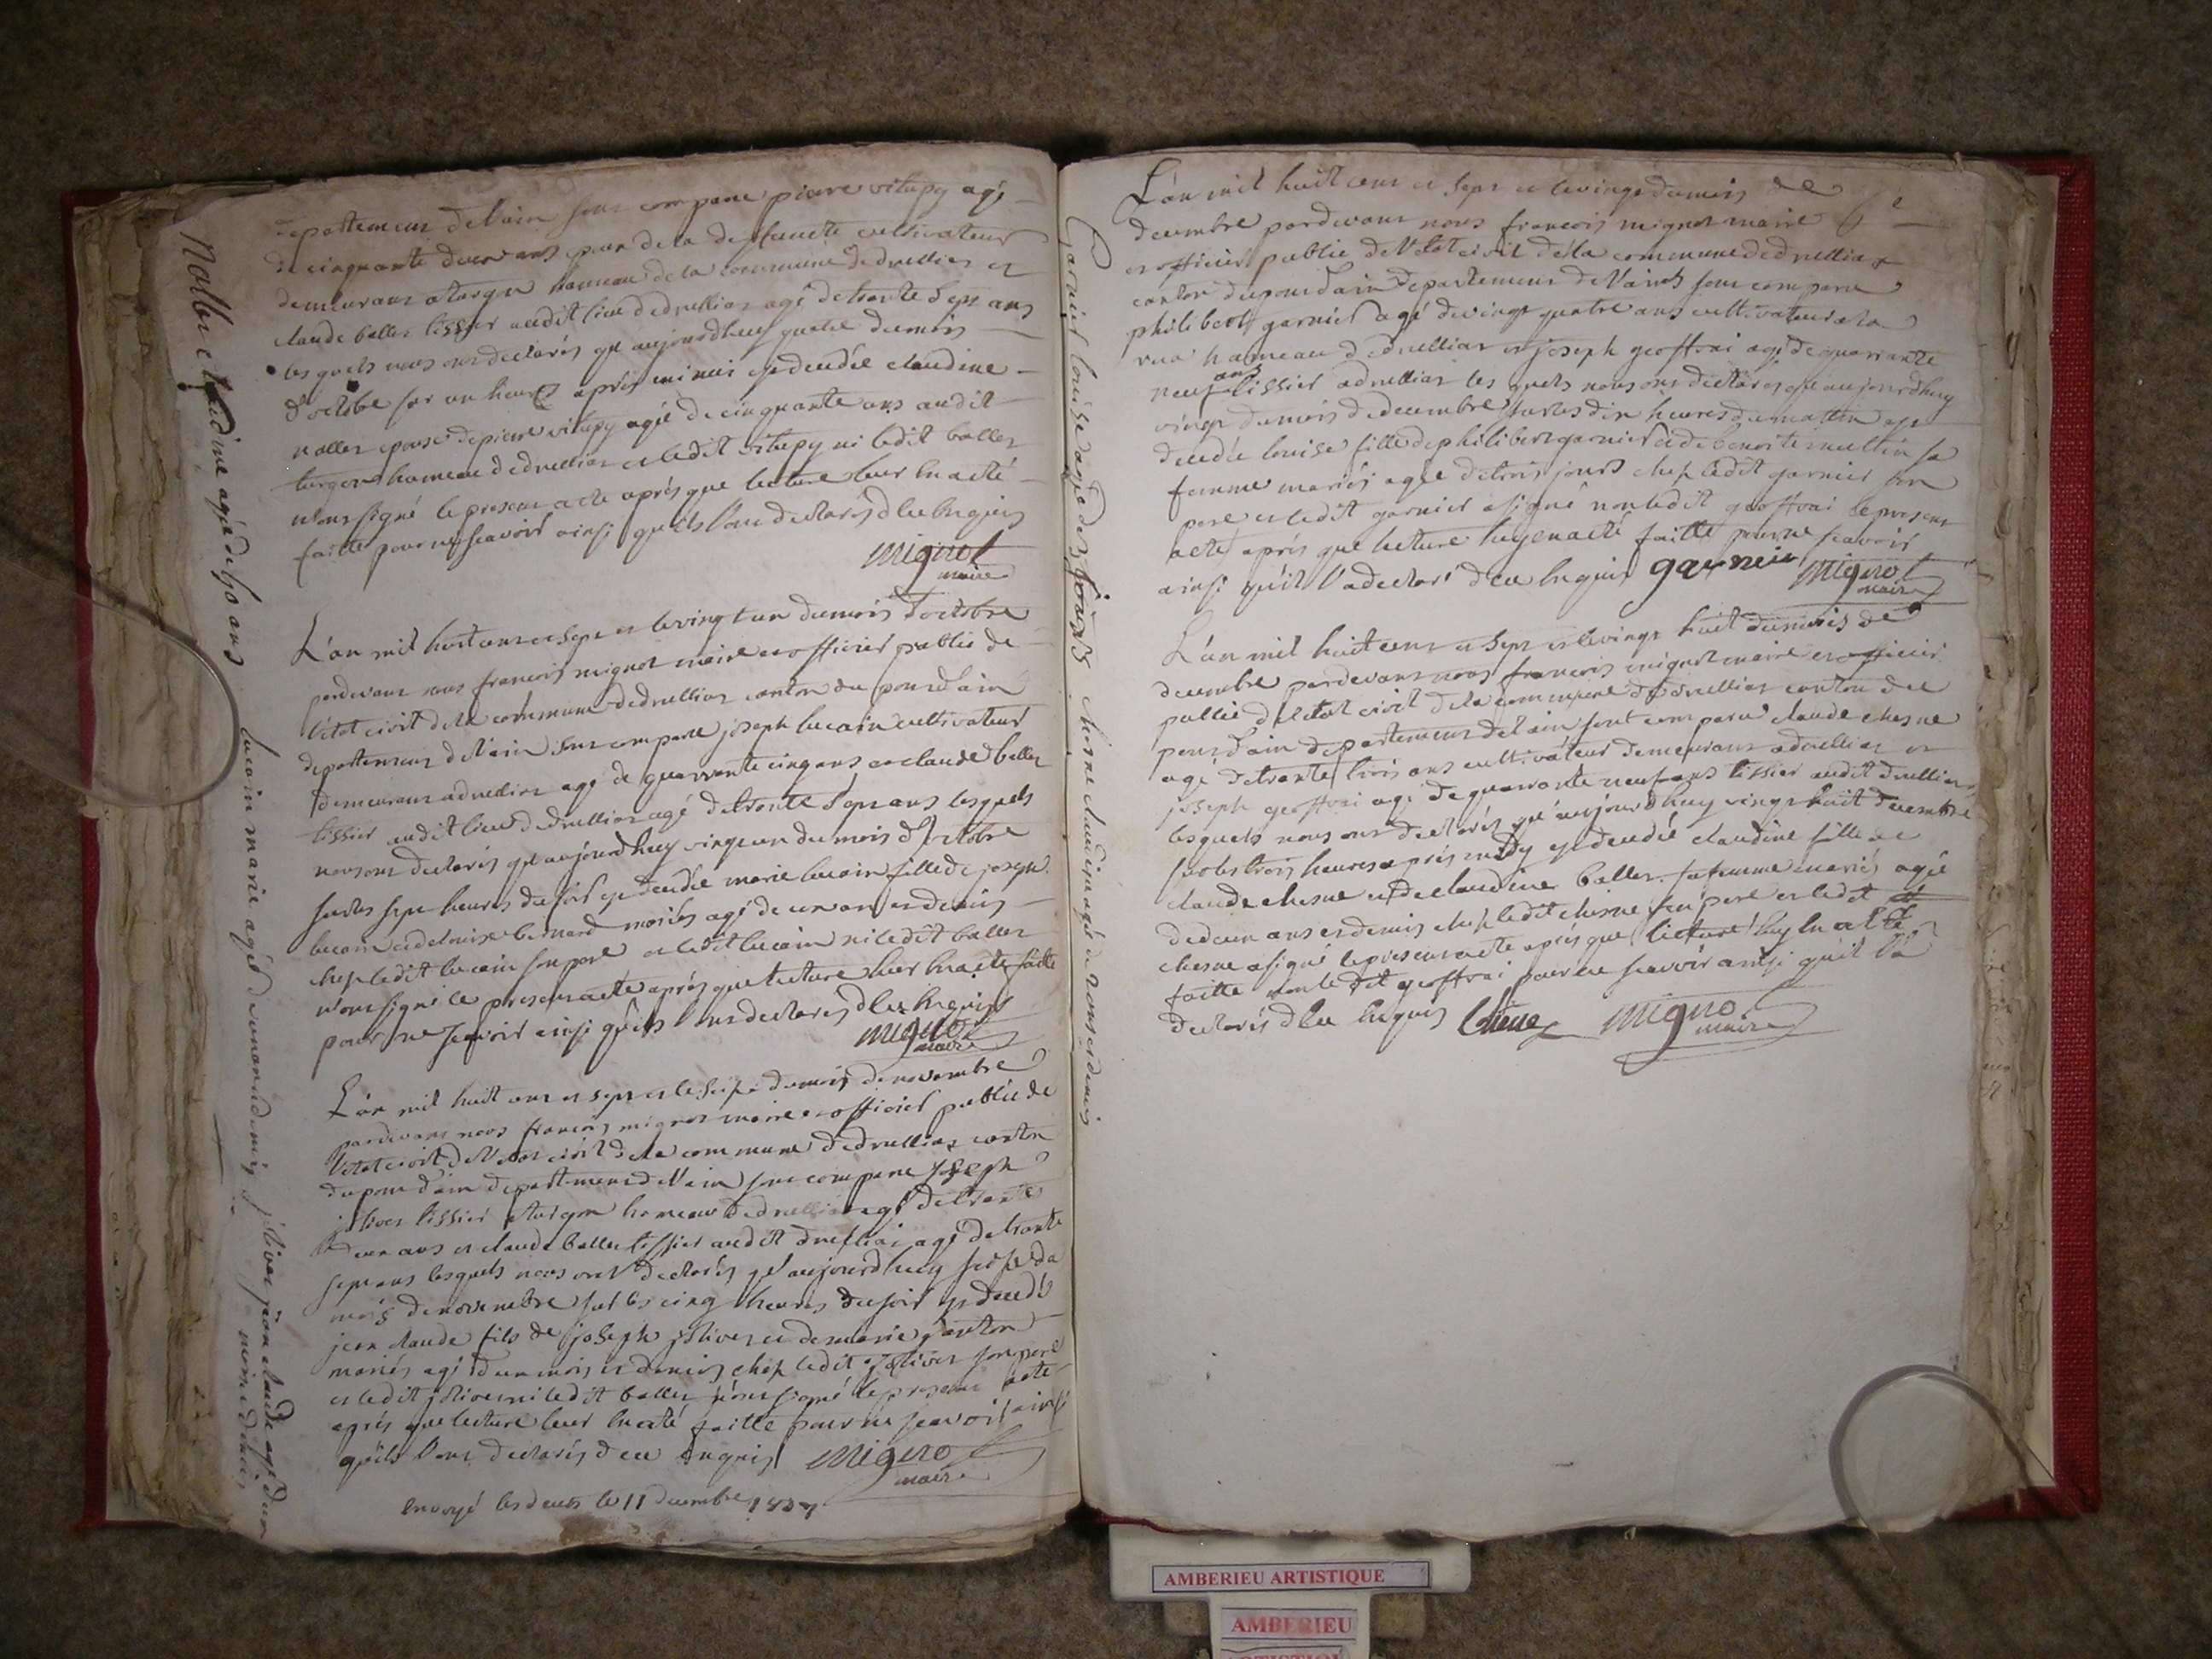 departement de l'ain sont comparu pierre vitupy agé
de cinquante deux ans epoux de la deffuncte cultivateur
demeurant a turgon hameau de la commune de druillias et
claude ballet tissier audit lieu de druillias agé de trante sept ans
lesquels nous ont declarés que aujourdhuy quatre du mois
d'octobre sur un heure après minuit est dendée claudine
nallet epouse de pierre vitupy agée de cinquante ans audit
turgon hameau de druillias et ledit vitupy ni ledit ballet
n'ont signé le present acte après que lecture leur en a eté
faitte pour ne scavoir ainsi qu'ils l'ont declarés de ce enquis
mignot
maire
L'an mil huit cent et sept et le vingt un du mois d'octobre
pardevant nous francois mignot maire et officier public de
l'etat civil de la commune de druillias canton du pont d'ain
departement de l'ain sont comparu joseph lucain cultivateur
demeurant a druillias agé de quarrante cinq ans et claude ballet
tissier audit lieu de druillias agé de trante sept ans lesquels
nous ont declarés que aujourdhuy vingt un du mois d'octobre
sur les sept heures du soir est dendée marie lucain fille de joseph
lucain et de louise bernard mariés agé de un an et demis
chez ledit lucain son pere et ledit lucain ni ledit ballet
n'ont signé le present acte après que lecture leur en a eté faitte
pour ne scavoir ainsi qu'ils l'ont declarés de ce enquis
mignot
maire
L'an mil huit cent et sept et le seize du mois de novembre
pardevant nous francois mignot maire et officier public de
l'etat civil de l'etat civil de la commune de druillias canton
du pont d'ain departement de l'ain sont comparu joseph
jolivet tissier a turgon hameau de druillias agé de trante
deux ans et claude ballet tissier audit druillias agé de trante
sept ans lesquels nous ont declarés que aujourdhuy seize du
mois de novembre sur les cinq heures du soir est dendé
jean claude fils de joseph jolivet et de marie janton
mariés agé d'un mois et demis chez ledit jolivet son pere
et ledit jolivet ni ledit ballet n'ont signé le present acte
après que lecture leur en a eté faitte pour ne scavoir ainsi
qu'ils l'ont declarés de ce enquis mignot
maire
envoyé les deux le 11 decembre 1807
Nallet claudine agée de 50 ans
lucain marie agée d'un an et demis
jolivet jean claude agé d'un
mois et demis
L'an mil huit cent et sept et le vingt du mois de
decembre pardevant nous francois mignot maire
et officier public de l'etat civil de la commune de druillias
canton du pont d'ain departement de l'ain sont comparu
philibert garnier agé de vingt quatre ans cultivateur a la
rua hameau de druillias et joseph geoffrai agé de quarante
neuf ans tissier a druillias lesquels nous ont declarés que aujourdhuy
vingt du mois de decembre sur les dix heures du matin est
dendée louise fille de philibert garnier et de benoite mullin sa
femme mariés agée de trois jours chez ledit garnier son
pere et ledit garnier a signé non ledit geoffrai le present
acte après que lecture luy en a eté faitte pour ne scavoir
ainsi qu'il l'a declaré de ce enquis garnier mignot
maire
L'an mil huit cent et sept et le vingt huit du mois de
decembre pardevant nous francois mignot maire et officier
public de l'etat civil de la commune de druillias canton du
pont d'ain departement de l'ain sont comparu claude chesne
agé de trante trois ans cultivateur demeurant a druillias et
joseph geoffrai agé de quarante neuf ans tissier audit druillias
lesquels nous ont declarés que aujourdhuy vingt huit decembre
sur les trois heures après midy est dendée claudine fille de
claude chesne et de claudine ballet sa femme mariés agée
de deux ans et demis chez ledit chesne son pere et ledit
chesne a signé le present acte après que lecture luy en a eté
faitte non ledit geoffrai pour ne scavoir ainsi qu'il l'a
declarés de ce enquis Chene mignot
maire
Garnier louise agée de 3 jours
chesne claudine agée de 2 ans et demis
AMBERIEU ARTISTIQUE
AMBERIEU